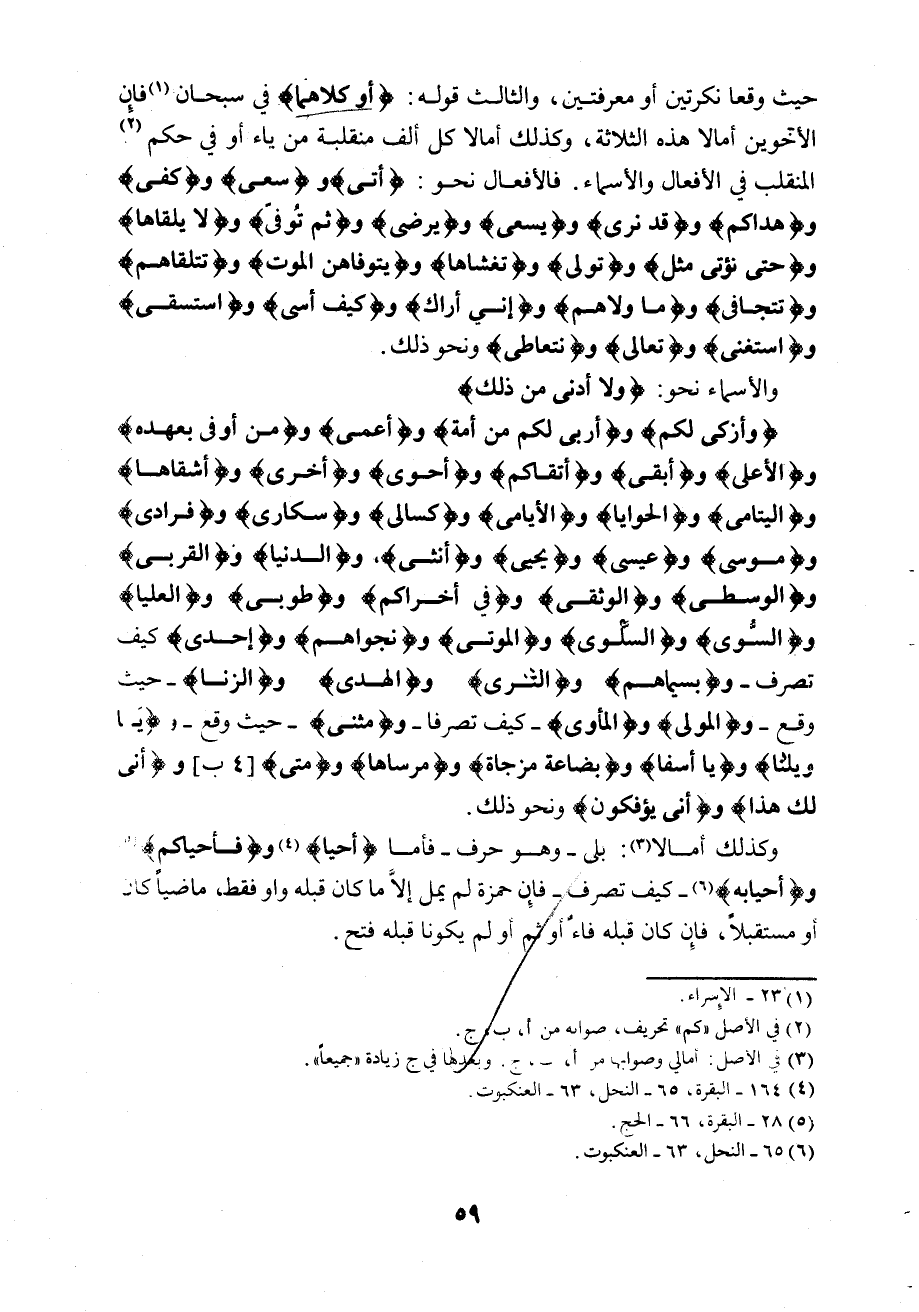 حيث وقعا نكرتين أو معرفتين، والثالث قوله: ﴿أو كلاهما﴾ في سبحان (١) فإن
الأخوين أمالا هذه الثلاثة، وكذلك أمالا كل ألف منقلبة من ياء أو في حكم (٢)
المنقلب في الأفعال والأسماء. فالأفعال نحو: ﴿أتى﴾ و﴿سعى﴾ و﴿كفى﴾
و﴿هداكم﴾ و﴿قد نرى﴾ و﴿يسعى﴾ و﴿يرضى﴾ و﴿ثم تُوفّى﴾ و﴿لا يلقاها﴾
و﴿حتى نؤتى مثل﴾ و﴿تولى﴾ و﴿تغشاها﴾ و﴿يتوفاهن الموت﴾ و﴿تتلقاهم﴾
و﴿تتجافى﴾ و﴿ما ولاهم﴾ و﴿إني أراك﴾ و﴿كيف أسى﴾ و﴿استسقى﴾
و﴿استغنى﴾ و﴿تعالى﴾ و﴿نتعاطى﴾ ونحو ذلك.
والأسماء نحو: ﴿ولا أدنى من ذلك﴾
﴿وأزكى لكم﴾ و﴿أربى لكم من أمة﴾ و﴿أعمى﴾ و﴿من أوفى بعهده﴾
و﴿الأعلى﴾ و﴿أبقى﴾ و﴿أتقاكم﴾ و﴿أحوى﴾ و﴿أخرى﴾ و﴿أشقاها﴾
و﴿اليتامى﴾ و﴿الحوايا﴾ و﴿الأيامى﴾ و﴿كسالى﴾ و﴿سكارى﴾ و﴿فرادى﴾
و﴿موسى﴾ و﴿عيسى﴾ و﴿يحيى﴾ و﴿أنثى﴾، و﴿الدنيا﴾ و﴿القربى﴾
و﴿الوسطى﴾ و﴿الوثقى﴾ و﴿في أخراكم﴾ و﴿طوبى﴾ و﴿العليا﴾
و﴿السُّوى﴾ و﴿السلّوى﴾ و﴿الموتى﴾ و﴿نجواهم﴾ و﴿إحدى﴾ كيف
تصرف ـ و﴿بسيماهم﴾ و﴿الثرى﴾ و﴿الهدى﴾ و﴿الزنا﴾ ـ حيث
وقع ـ و﴿المولى﴾ و﴿المأوى﴾ ـ كيف تصرفا ـ و﴿مثنى﴾ ـ حيث وقع ـ و﴿يَا
ويلتا﴾ و﴿يا أسفا﴾ و﴿بضاعة مزجاة﴾ و﴿مرساها﴾ و﴿متى﴾ [٤ ب] و﴿أنى
لك هذا﴾ و﴿أنى يؤفكون﴾ ونحو ذلك.
وكذلك أمالا (٣): بلى ـ وهو حرف ـ فأما ﴿أحيا﴾ (٤) و﴿فأحياكم﴾
و﴿أحيابه﴾ (٦) ـ كيف تصرف ـ فإن حمزة لم يمل إلاَّ ما كان قبله واو فقط، ماضياً كان
أو مستقبلاً، فإن كان قبله فاءً أو ثم أو لم يكونا قبله فتح.
(١) ٢٣ ـ الإسراء.
(٢) في الأصل «كم» تحريف، صوابه من أ، ب، ج.
(٣) في الأصل: أمالي وصوابها من أ، ب، ج. وبعدها في ج زيادة «جميعاً».
(٤) ١٦٤ ـ البقرة، ٦٥ ـ النحل، ٦٣ ـ العنكبوت.
(٥) ٢٨ ـ البقرة، ٦٦ ـ الحج.
(٦) ٦٥ ـ النحل، ٦٣ ـ العنكبوت.
٥٩